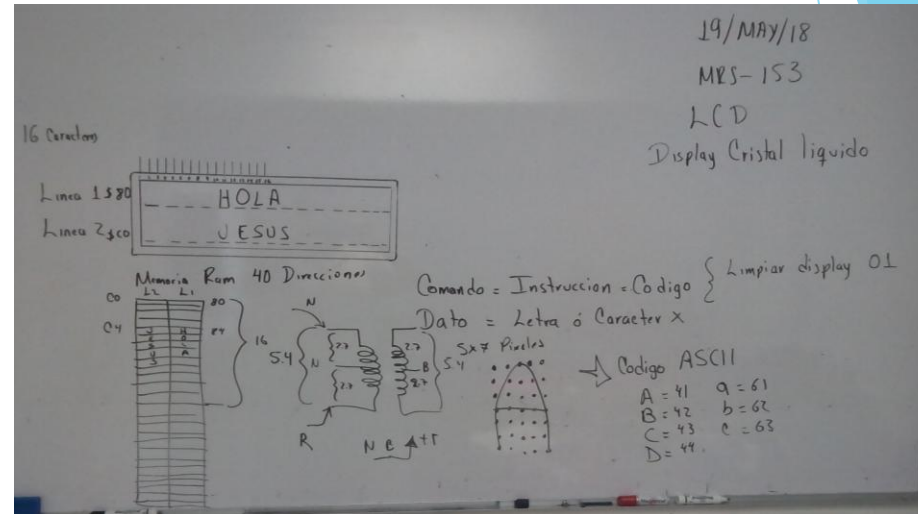 19/MAY/18
MRS-153
LCD
Display Cristal liquido
16 Caracteres
Linea 1 $80
HOLA
Linea 2 $C0
JESUS
Memoria Ram 40 Direcciones
L2 L1
C0 80
C4 84
16
HOLA
N
5.4
N
2.7
2.7
R
2.7
B
2.7
5.4
Comando = Instruccion = Codigo { Limpiar display 01
Dato = Letra ó Caracter X
5x7 Pixeles
Codigo ASCII
A = 41 a = 61
B = 42 b = 62
C = 43 c = 63
D = 44